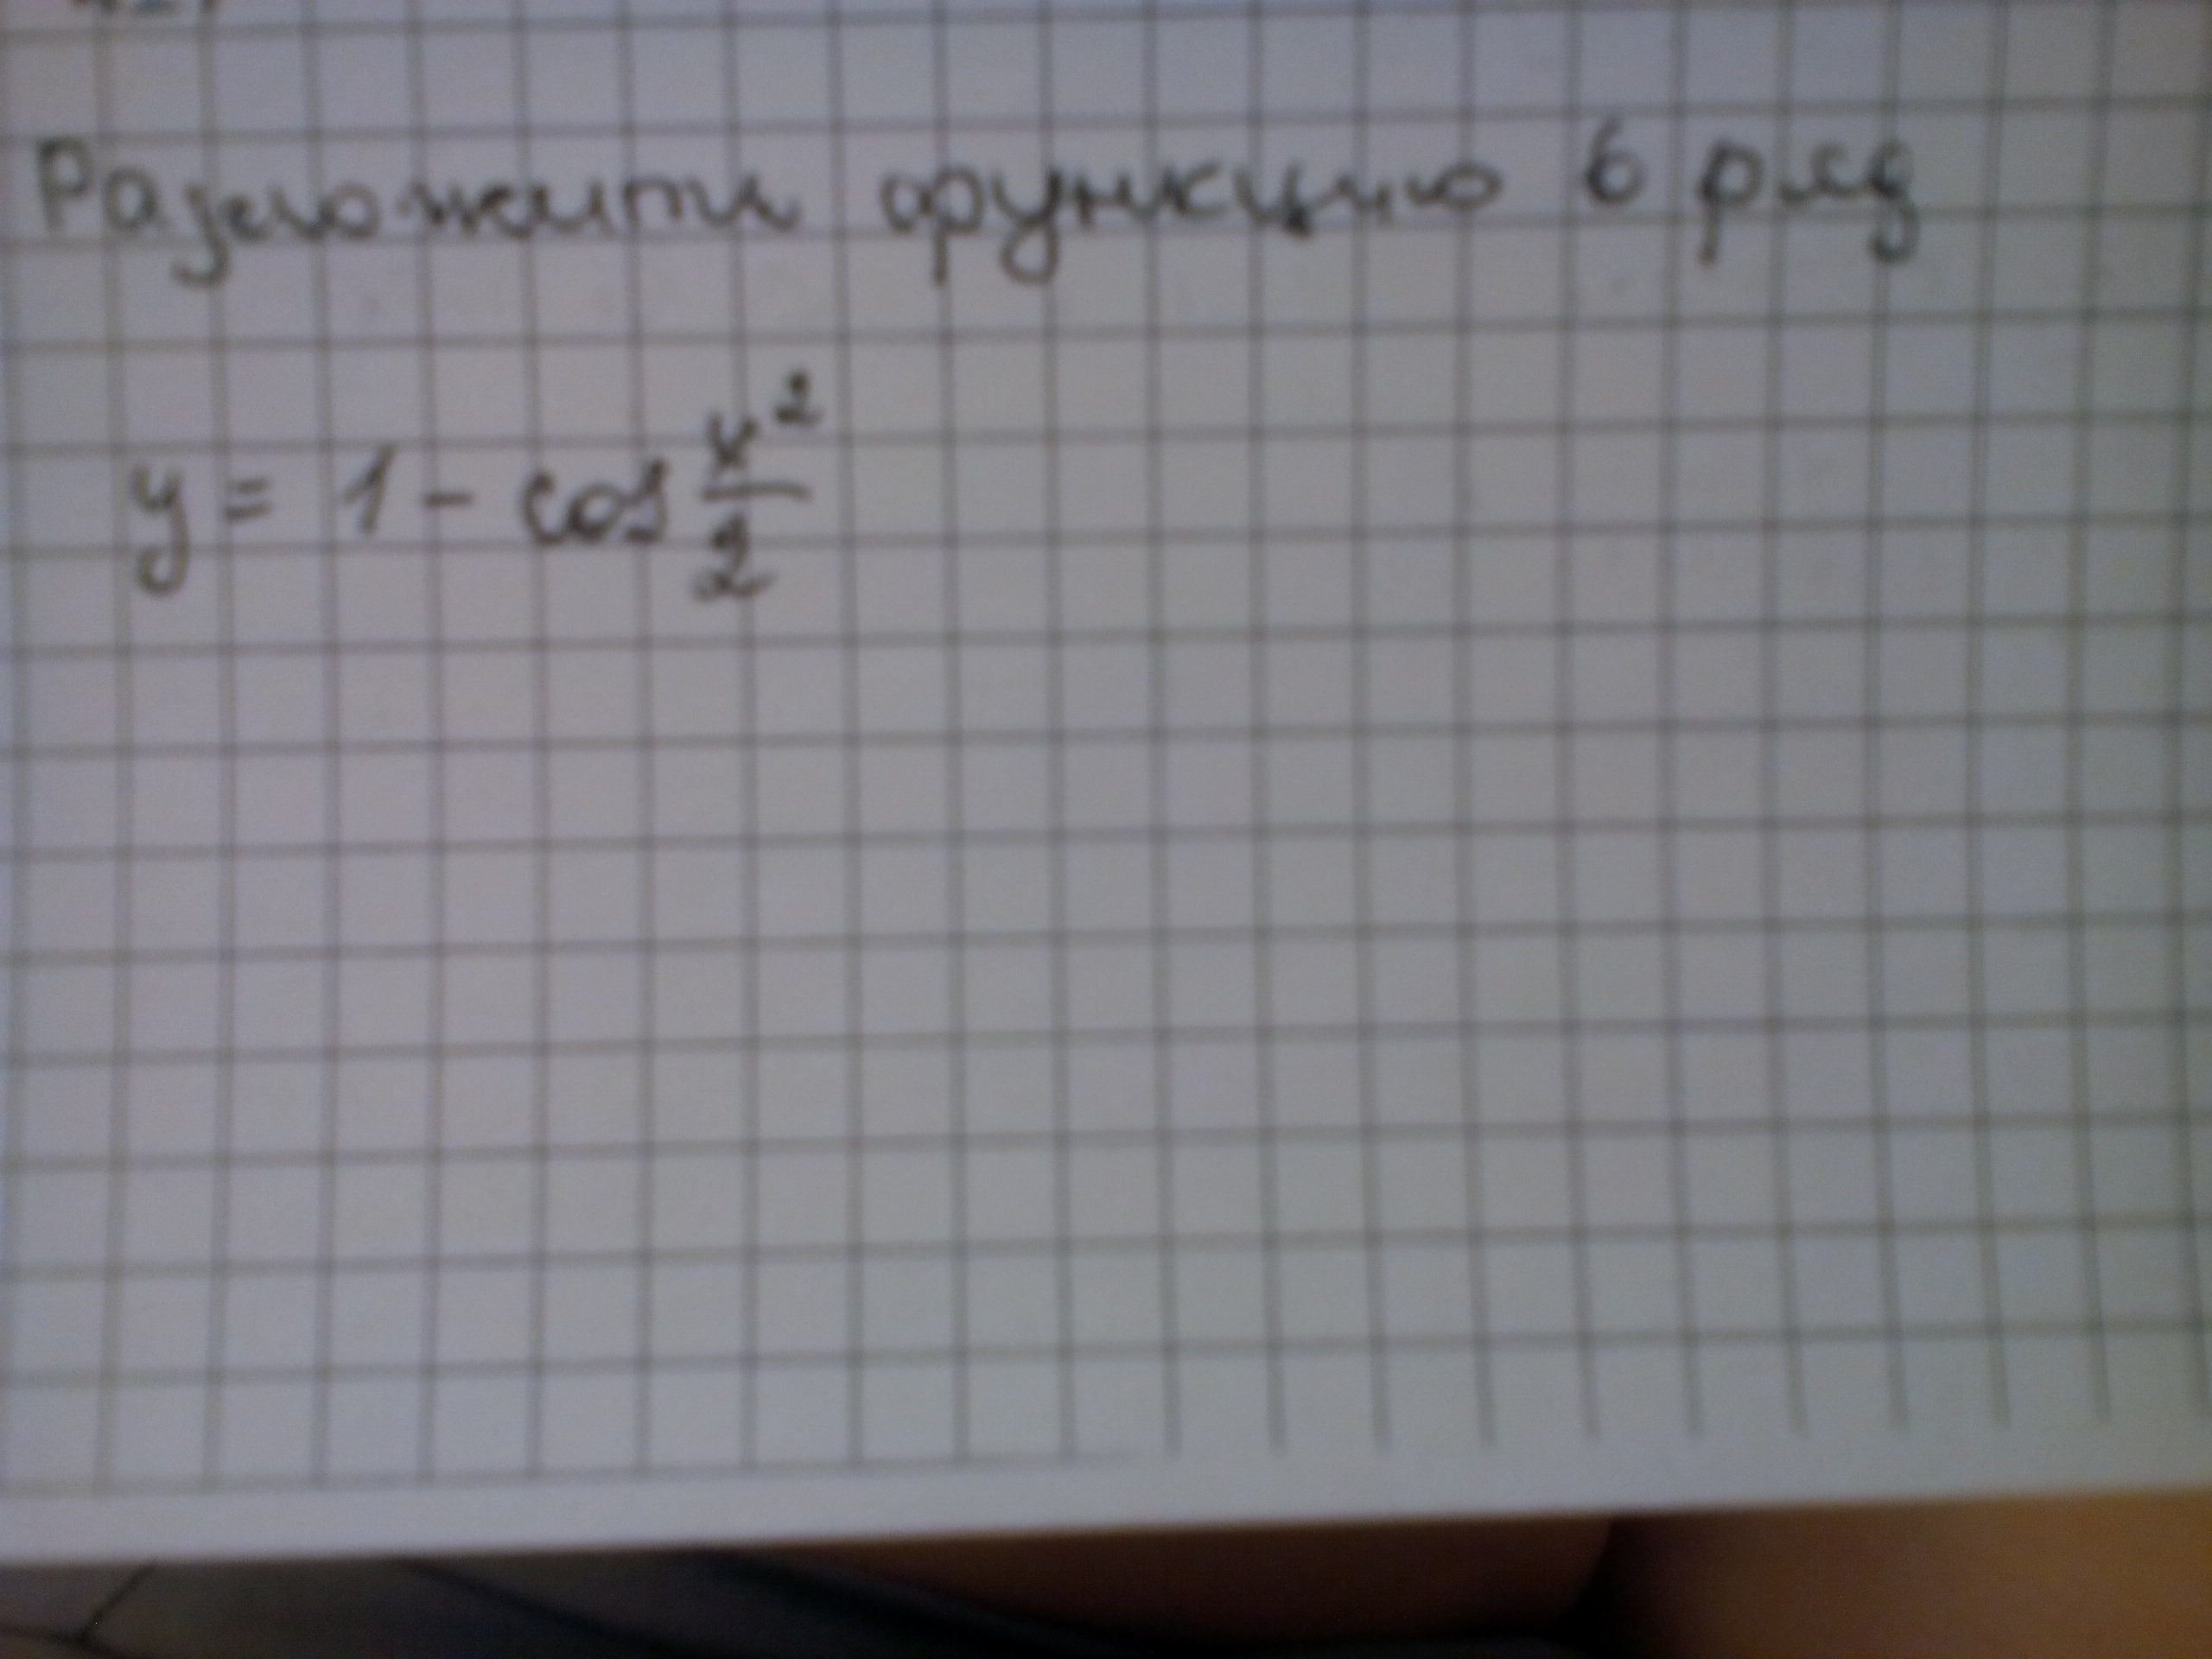 Разложить функцию в ряд
y = 1 - cos x²/2